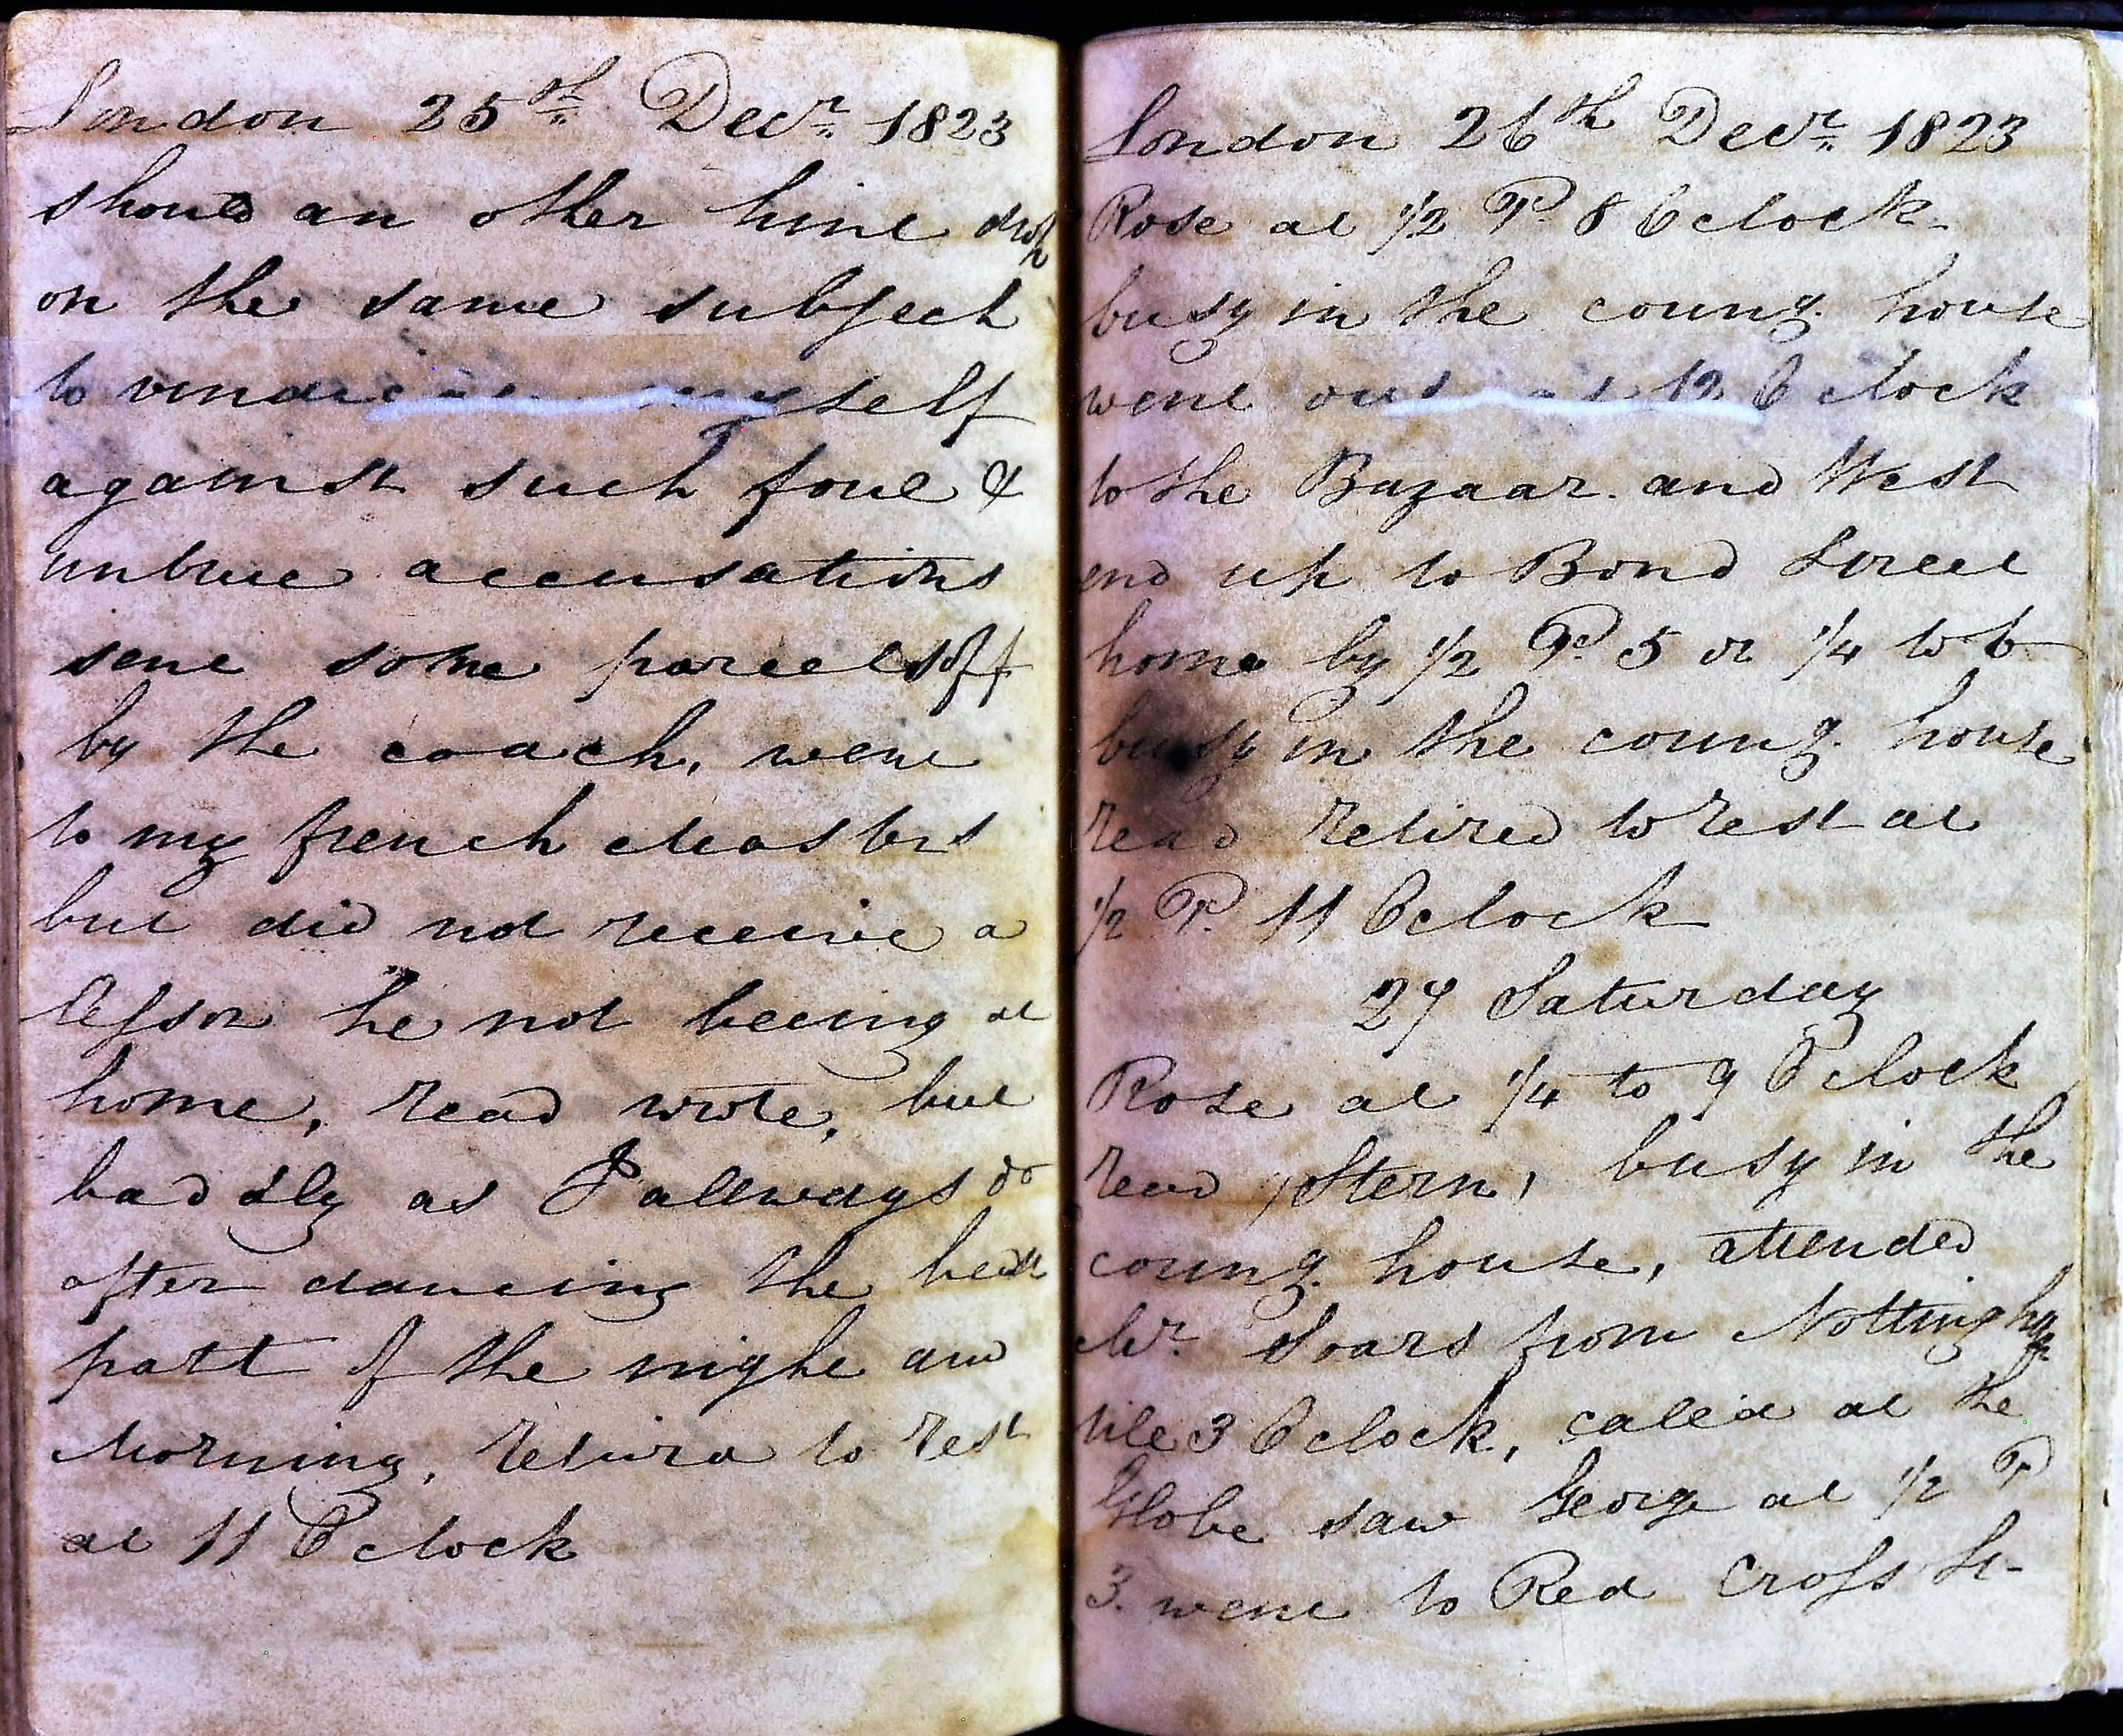 London 25th Decr 1823
should an other hint drop
on the same subject
to vindicate myself
against such foul &
untrue accusations
sent some parcels off
by the coach, went
to my french Masters
but did not receive a
lesson he not beeing at
home, read wrote, but
baddly as I allways do
after dancing the best
part of the night and
Morning, retird to rest
at 11 O clock
London 26th Decr 1823
Rose at 1/2 P. 8 O clock
busy in the coung. house
went out at 12 O clock
to the Bazaar. and West
end up to Bond Street
home by 1/2 P. 5 or 1/4 to 6
busy in the coung. house
read retired to rest at
1/2 P. 11 O clock
27 Saturday
Rose at 1/4 to 9 O clock
read Stern, busy in the
coung. house, attended
Mr. Soars from Nottingham
till 3 O clock, called at the
Globe saw George at 1/2 P
3. went to Red Cross St-